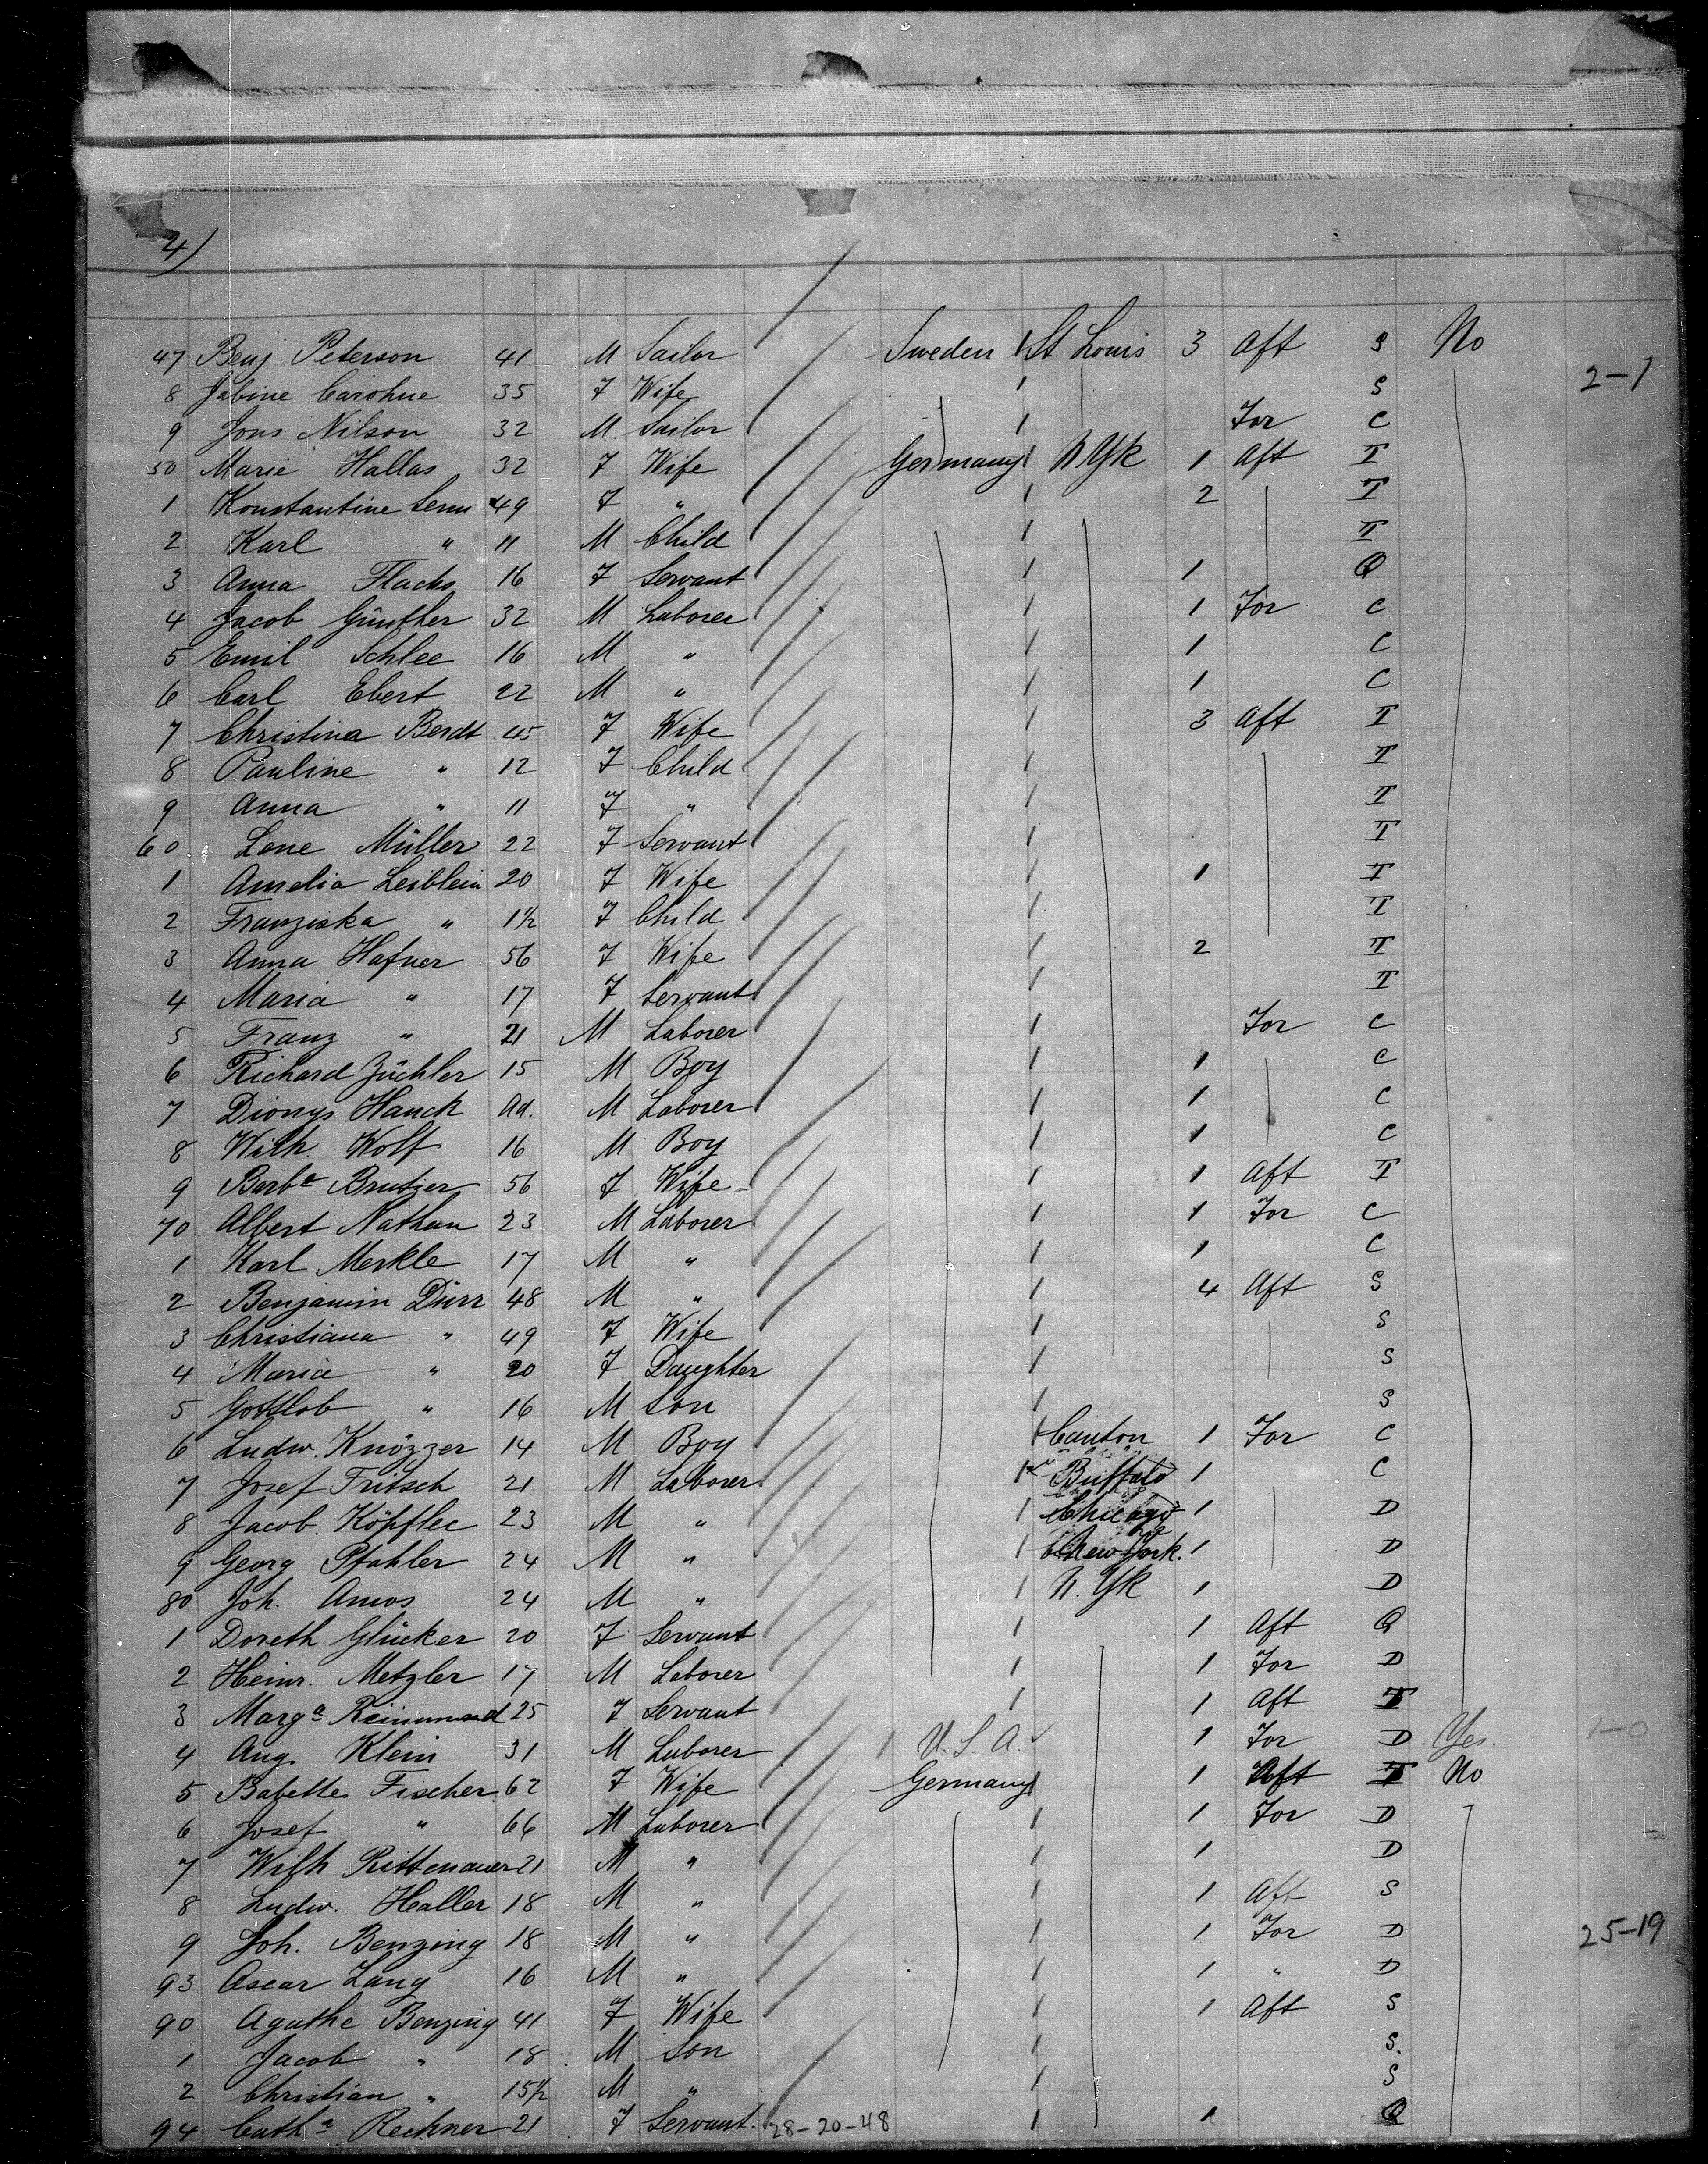 4)
47 Benj Peterson 41 M Sailor Sweden 1 St Louis 3 Aft S No
8 Sabine Caroline 35 F Wife 1 S 2-1
9 Jons Nilson 32 M. Sailor 1 For C
50 Marie Hallas 32 F Wife Germany 1 N Yk 1 Aft T
1 Konstantine Senn 49 F " 1 2 T
2 Karl " 11 M Child 1 T
3 Anna Flachs 16 F Servant 1 1 Q
4 Jacob Günther 32 M Laborer 1 1 For C
5 Emil Schlee 16 M " 1 1 C
6 Carl Ebert 22 M " 1 1 C
7 Christina Berdt 45 F Wife 1 3 Aft T
8 Pauline " 12 F Child 1 T
9 Anna " 11 F " 1 T
60 Lene Müller 22 F Servant 1 T
1 Amelia Leiblein 20 F Wife 1 1 T
2 Franziska " 1½ F Child 1 T
3 Anna Hafner 56 F Wife 1 2 T
4 Maria " 17 F Servant 1 T
5 Franz " 21 M Laborer 1 For C
6 Richard Züchler 15 M Boy 1 1 C
7 Dionys Hauck Ad. M Laborer 1 1 C
8 Wilh. Wolf 16 M Boy 1 1 C
9 Barba Brutzer 56 F Wife 1 1 Aft T
70 Albert Nathan 23 M Laborer 1 1 For C
1 Karl Merkle 17 M " 1 1 C
2 Benjamin Dürr 48 M " 1 4 Aft S
3 Christiana " 49 F Wife 1 S
4 Maria " 20 F Daughter 1 S
5 Gottlob " 16 M Son 1 S
6 Ludw. Knözzer 14 M Boy 1 Canton 1 For C
7 Josef Fritsch 21 M Laborer 1 Buffalo 1 C
8 Jacob Köpflec 23 M " 1 Chicago 1 D
9 Georg Pfahler 24 M " 1 New York. 1 D
80 Joh. Amos 24 M " 1 N. Yk 1 D
1 Doreth Glücker 20 F Servant 1 1 Aft Q
2 Heinr. Metzler 17 M Laborer 1 1 For D
3 Marga Reinmund 25 F Servant 1 1 Aft T
4 Aug. Klein 31 M Laborer 1 U. S. A. 1 For D Yes. 1-0
5 Babette Fischer 62 F Wife Germany 1 1 Aft T No
6 Josef " 66 M Laborer 1 1 For D
7 Wilh Rittenauer 21 M " 1 1 D
8 Ludw. Haller 18 M " 1 1 Aft S
9 Joh. Benzing 18 M " 1 1 For D 25-19
93 Oscar Lang 16 M " 1 1 " D
90 Agathe Benzing 41 F Wife 1 1 Aft S
1 Jacob " 18 M Son 1 S.
2 Christian " 15½ M " 1 S
94 Catha Rechner 21 F Servant. 28-20-48 1 1 Q